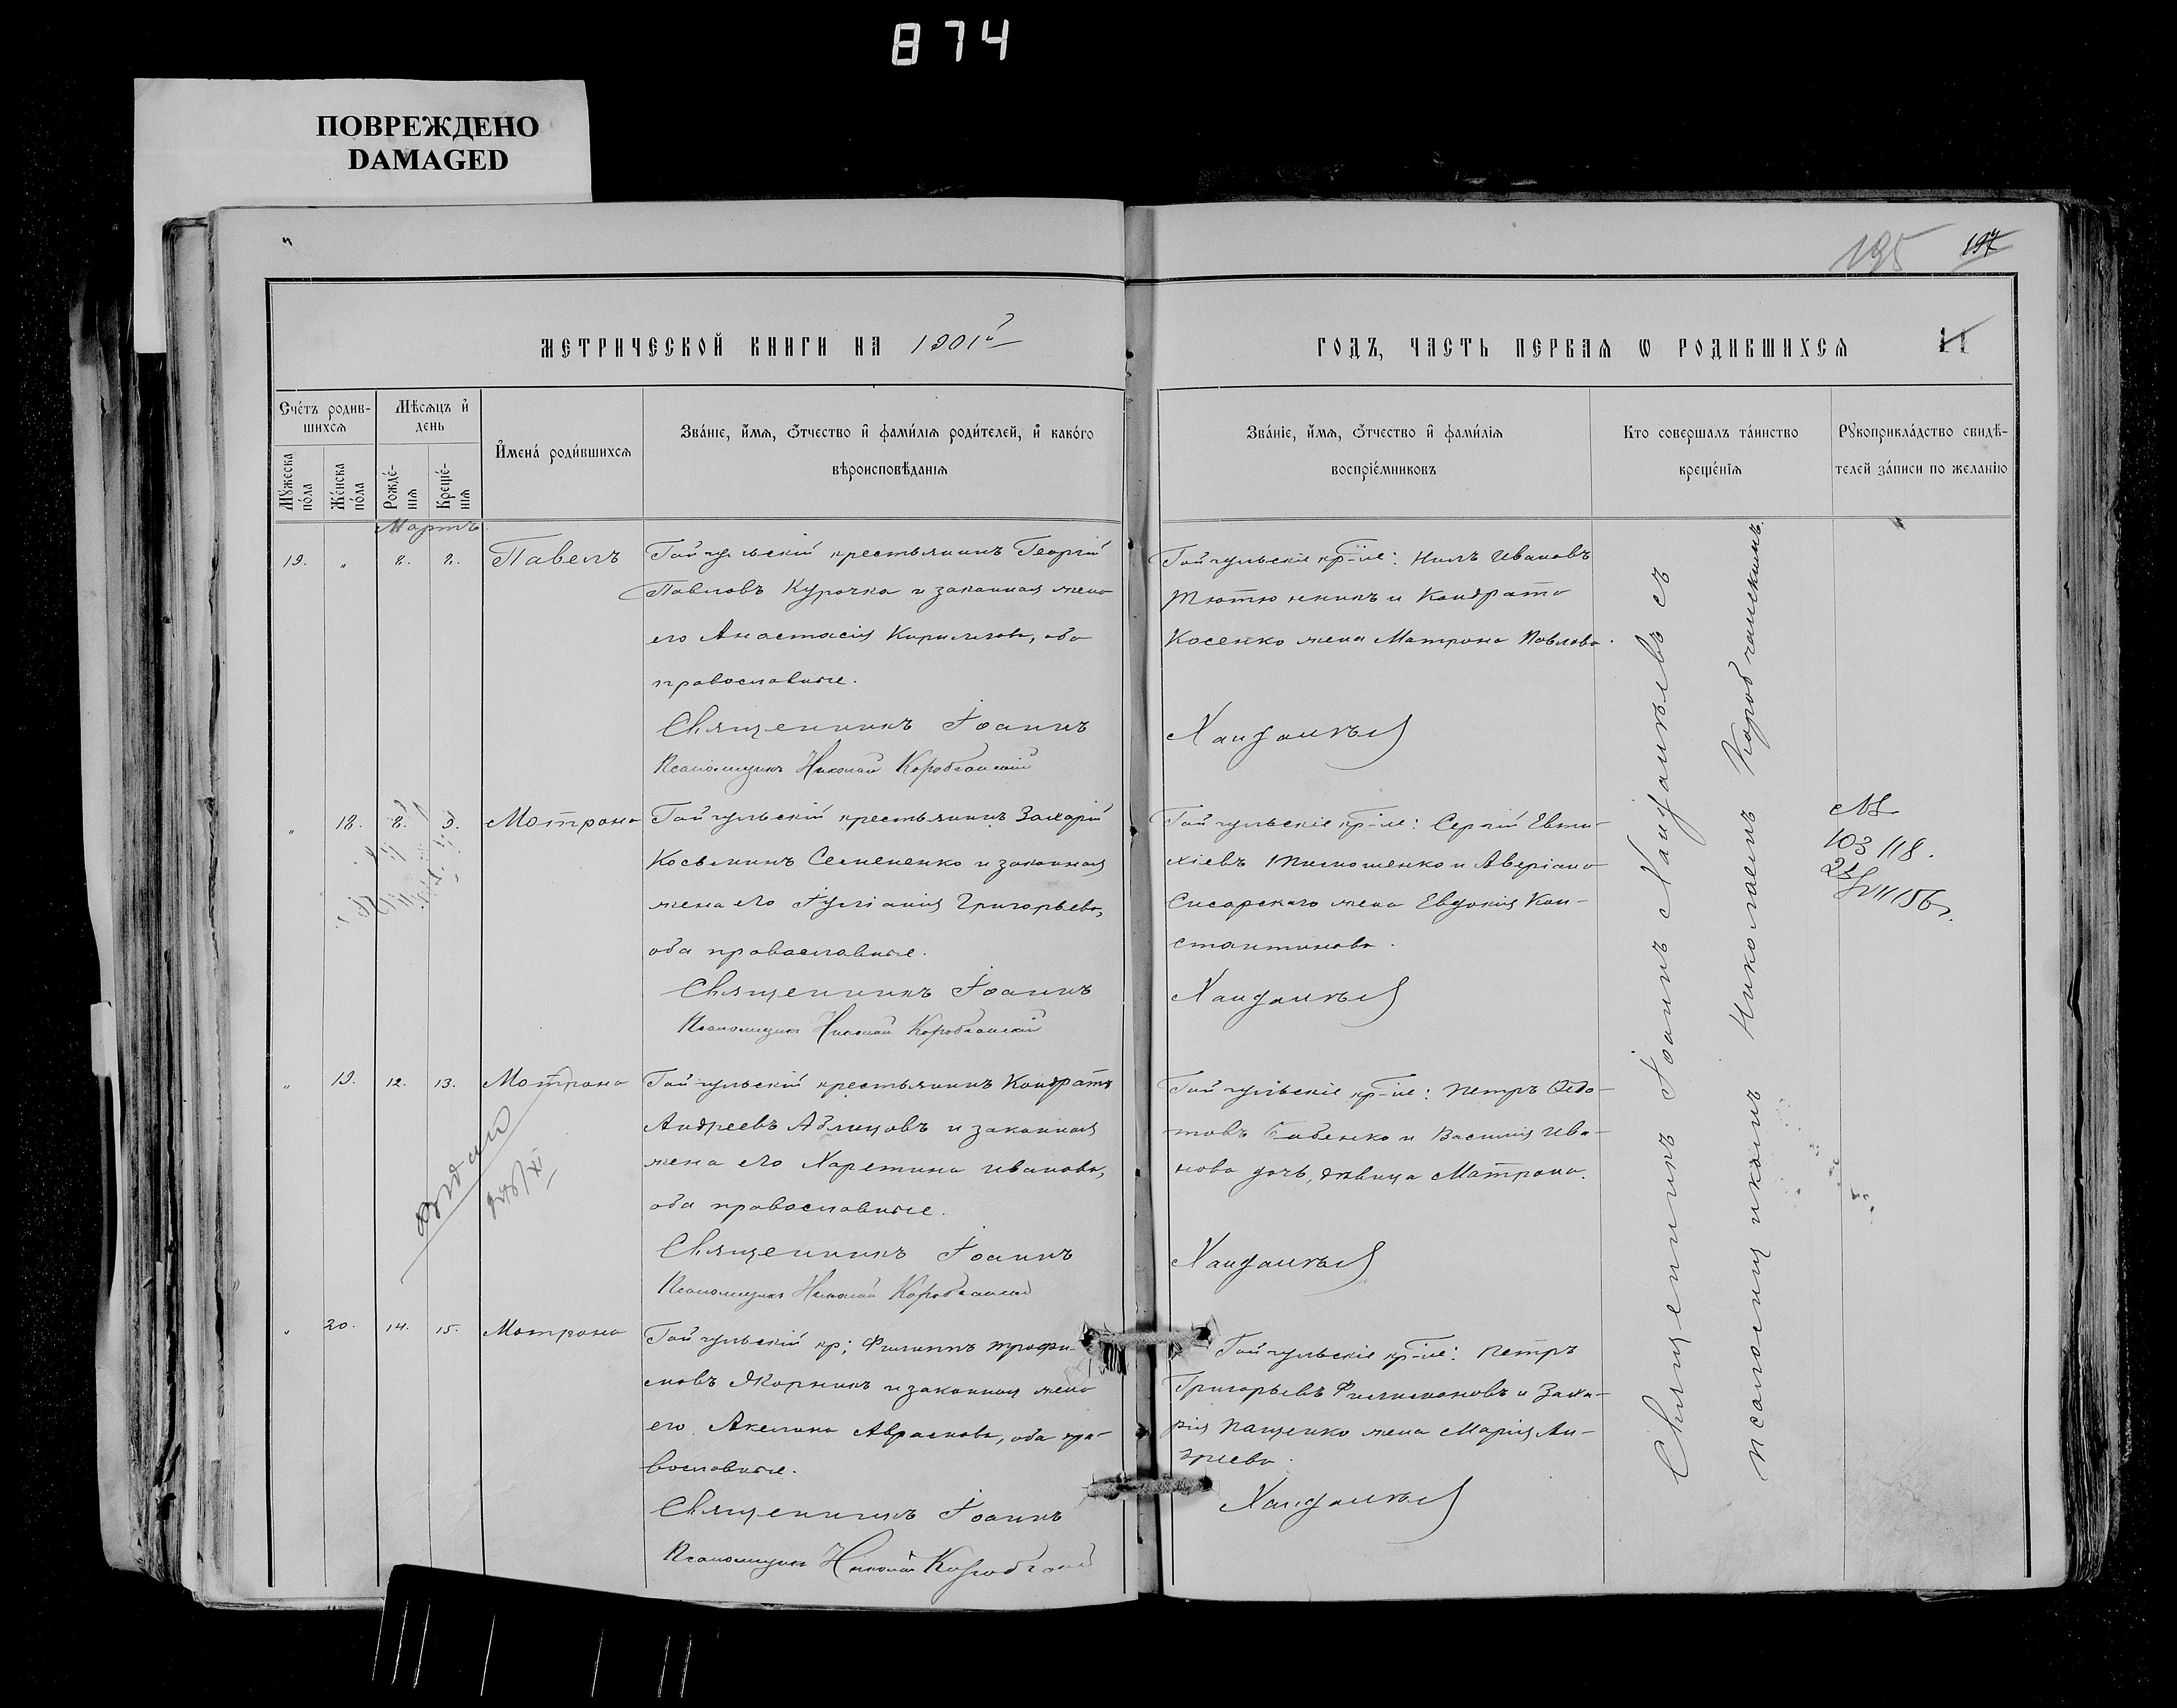 874
ПОВРЕЖДЕНО
DAMAGED
195 197
МЕТРИЧЕСКОЙ КНИГИ НА 1901й
ГОДЪ, ЧАСТЬ ПЕРВАЯ Ѡ РОДИВШИХСЯ 11
Счетъ родив-
шихся
Мѣсяцъ и
день
Мужеска
пола
Женска
пола
Рожде-
нія
Креще-
нія
Имена родившихся
Званіе, имя, отчество и фамилія родителей, и какого
вѣроисповѣданія
Званіе, имя, отчество и фамилія
воспріемниковъ
Кто совершалъ таинство
крещенія
Рукоприкладство свидѣ-
телей записи по желанію
Мартъ
19. " 2. 2. Павелъ
Гайчульскій крестьянинъ Георгій
Павловъ Курочка и законная жена
его Анастасія Кириллова, оба
православные.
Священникъ Іоаннъ
Псаломщикъ Николай Коробчанскій
Гайчульскіе кр-не: Нилъ Ивановъ
Тютюнникъ и Кондрата
Косенко жена Матрона Павлова.
Хандалѣев
" 18. 8. 9. Матрона
Гайчульскій крестьянинъ Захарій
Косьминъ Семененко и законная
жена его Іуліанія Григорьева,
оба православные.
Священникъ Іоаннъ
Псаломщикъ Николай Коробчанскій
Гайчульскіе кр-не: Сергій Евти-
хіевъ Тимошенко и Аверіана
Сисарскаго жена Евдокія Кон-
стантинова.
Хандалѣев
№
103 118.
" 19. 12. 13. Матрона
Гайчульскій крестьянинъ Кондратъ
Андреевъ Аблицовъ и законная
жена его Харетина Иванова,
оба православные.
Священникъ Іоаннъ
Псаломщикъ Николай Коробчанскій
Гайчульскіе кр-не: Петръ Ѳедо-
товъ Бабенко и Василія Ива-
нова дочь, дѣвица Матрона.
Хандалѣев
" 20. 14. 15. Матрона
Гайчульскій кр; Филиппъ Трофи-
мовъ Жорникъ и законная жена
его Акелина Авраамова, оба пра-
вославные.
Священникъ Іоаннъ
Псаломщикъ Николай Коробчанскій
Гайчульскіе кр-не: Петръ
Григорьевъ Филимоновъ и Заха-
рія Пащенко жена Марія Ан-
дреева.
Хандалѣев
Священникъ Іоаннъ Хандалѣевъ съ
псаломщикомъ Николаемъ Коробчанскимъ.